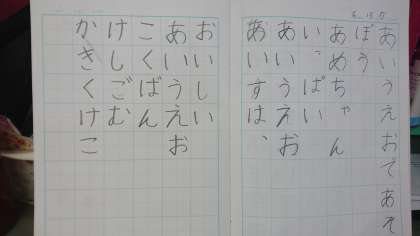 あいうえおであそ
ぼう
あめちゃん
いっぱい
あいうえお
あいすは、
おいしい
あいうえお
こくばん
けしごむ
かきくけこ